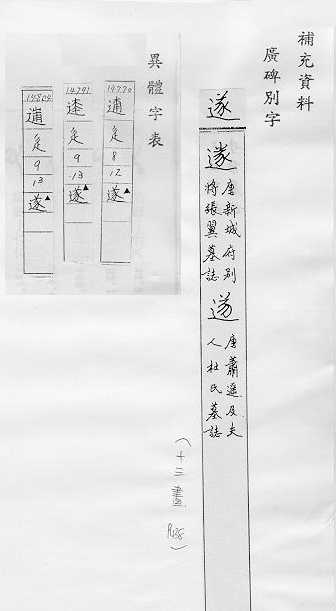 補充資料
廣碑別字
遂
唐新城府別
將張翼墓誌
唐蕭及夫
人杜氏墓誌
(十三畫 )
異體字表
辵
8
12
遂▲
14791
辵
9
13
遂▲
14804
辵
9
13
遂▲